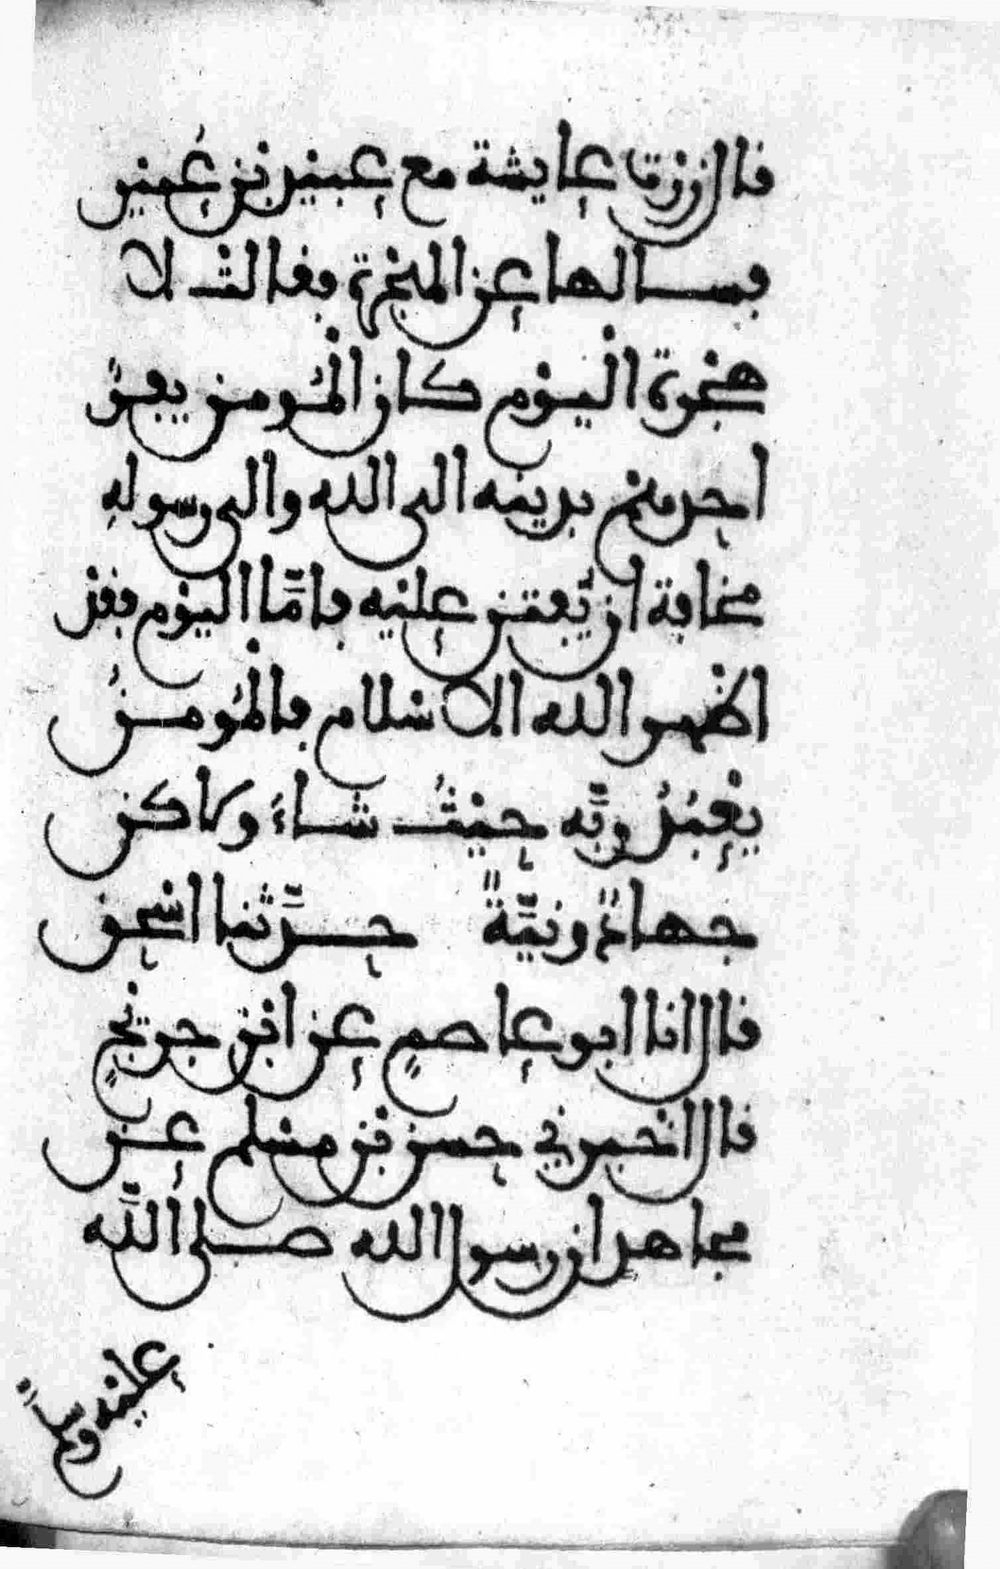 قال زرت عايشة مع عبيد بن عُمير
فسالها عن الهجرة فقالت لا
هجرة اليوم كان المُومن يفرُّ
احدهم بدينه الى الله والى رسولهِ
مخافة ان يُّفتن عليه فامَّا اليوم فقد
اظهر الله الاسلام فالمُومنُ
يعْبُدُ ربَّه حيْثُ شاءَ ولاكن
جهادٌ ونيَّةٌ حدَّثنا اسحق
قال انا ابو عاصمٍ عن ابن جريجٍ
قال اخبرني حسن بن مسلم عن
مجاهد ان رسول الله صلى اللَّه
عليه وسلَّم